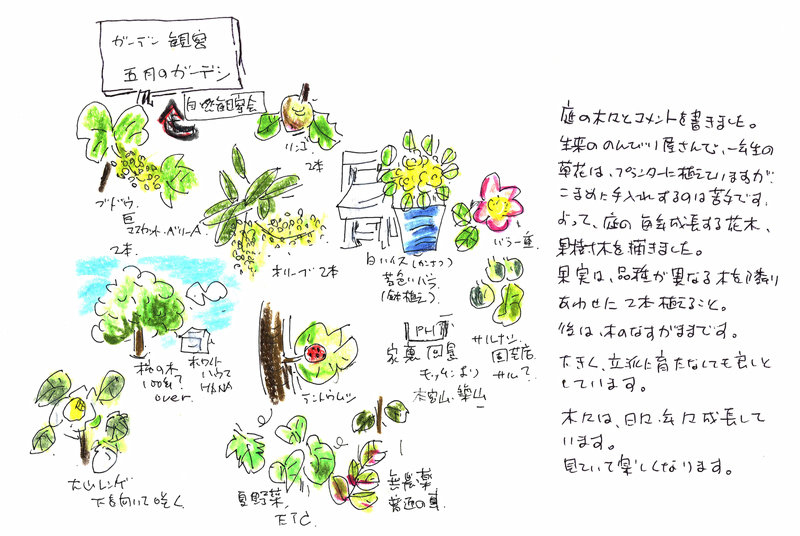 ガーデン 観察
五月のガーデン
自然観察会
リンゴ
2本
ブドウ
巨
マスカット・ベリーA
2本
オリーブ 2本
白いイス
黄色いバラ
(鉢植え)
バラ一重
柿の木
100年?
over.
ホワイト
ハウス
HANA
テントウムシ
PH
家裏 風景
サルナシ
園芸店
サル?
大山レンゲ
下を向いて咲く
夏野菜
ETC
無農薬
普通の草
庭の木々とコメントを書きました。
生来ののんびり屋さんで、一年生の
草花は、プランターに植えていますが
こまめに手入れするのは苦手です。
よって、庭の毎年成長する花木、
果樹木を描きました。
果実は、品種が異なる木を隣り
あわせに2本植えること。
後は、木のなすがままです。
大きく、立派に育たなくても良いと
しています。
木々は、日々年々成長して
います。
見ていて楽しくなります。